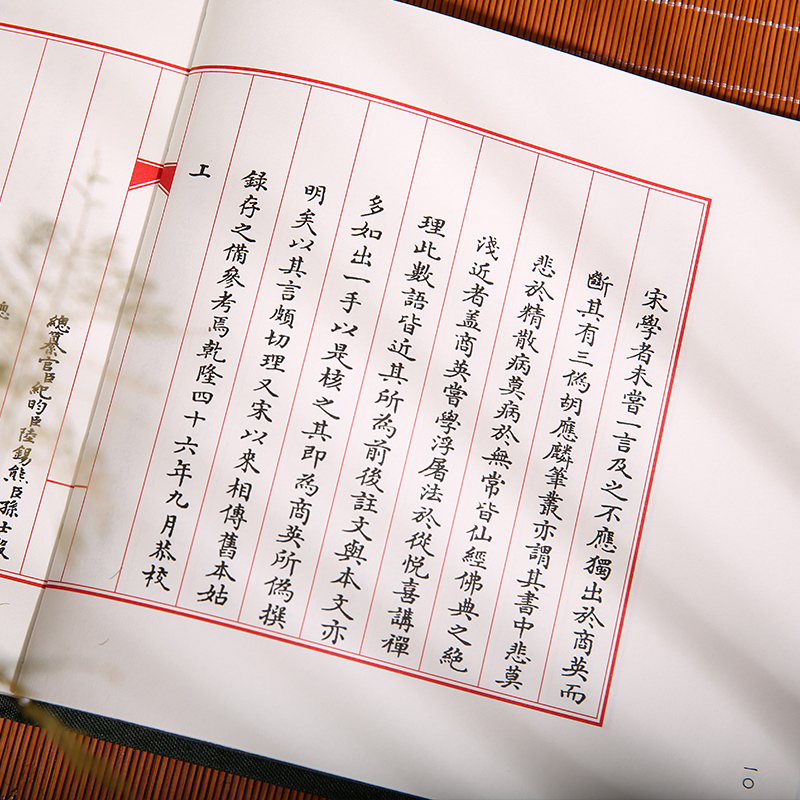 宋學者未嘗一言及之不應獨出於商英而
斷其有三偽胡應麟筆叢亦謂其書中悲莫
悲於精散病莫病於無常皆仙經佛典之絶
淺近者盖商英嘗學浮屠法於從悅喜講禪
理此數語皆近其所為前後註文與本文亦
多如出一手以是核之其即為商英所偽撰
明矣以其言頗切理又宋以來相傳舊本姑
錄存之備參考焉乾隆四十六年九月恭校
上
總纂官臣紀昀臣陸錫熊臣孫士毅
總
一〇